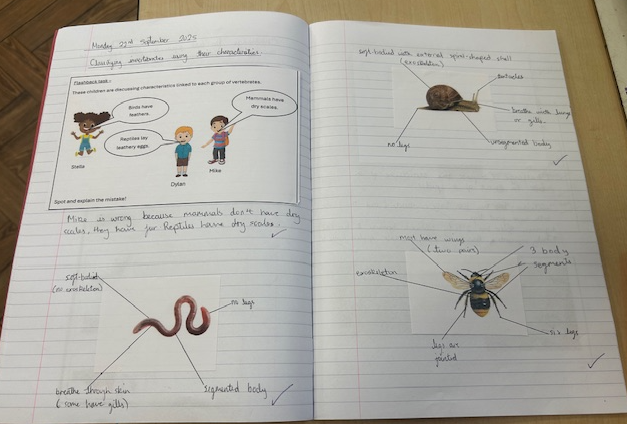 Monday 22nd September 2025
Classifying invertebrates using their characteristics.
Flashback task -
These children are discussing characteristics linked to each group of vertebrates.
Birds have
feathers.
Mammals have
dry scales.
Reptiles lay
leathery eggs.
Stella
Dylan
Mike
Spot and explain the mistake!
Mike is wrong because mammals don't have dry
scales, they have fur Reptiles have dry scales.
soft-bodied
(no exoskeleton)
no legs
breathe through skin
(some have gills)
segmented body
soft-bodied with external spiral-shaped shell
(exoskeleton)
tentacles
breathe with lungs
or gills.
no legs
unsegmented body
most have wings
(two pairs)
3 body
segments
exoskeleton
six legs
legs are
jointed